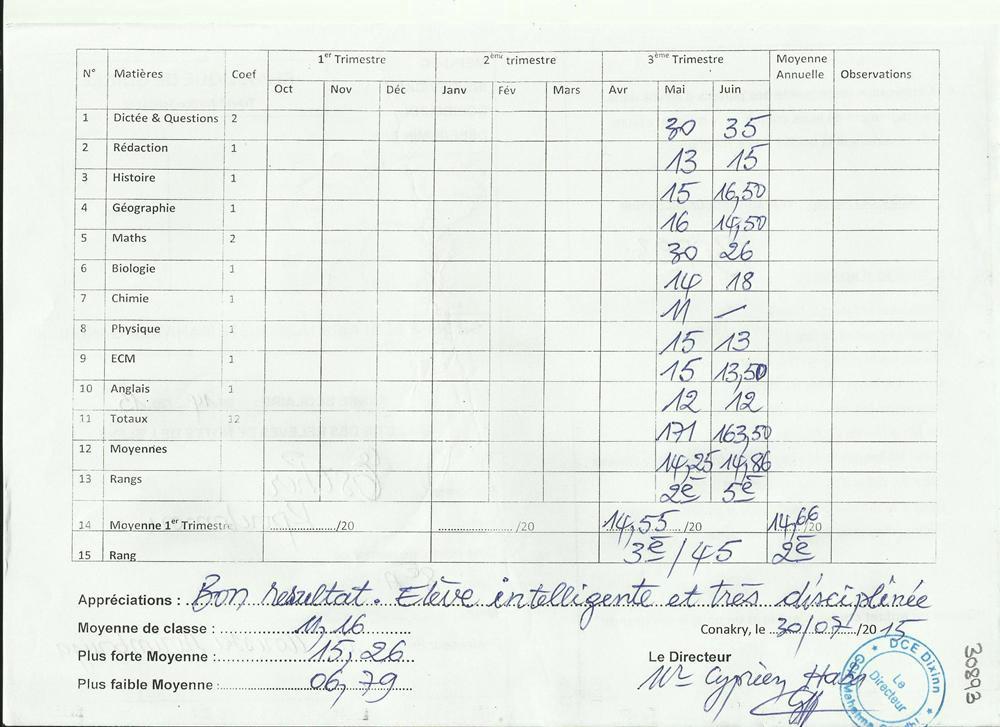 N° Matières Coef 1er Trimestre 2ème trimestre 3ème Trimestre Moyenne Annuelle Observations
Oct Nov Déc Janv Fév Mars Avr Mai Juin
1 Dictée & Questions 2 30 35
2 Rédaction 1 13 15
3 Histoire 1 15 16,50
4 Géographie 1 16 14,50
5 Maths 2 30 26
6 Biologie 1 14 18
7 Chimie 1 11 —
8 Physique 1 15 13
9 ECM 1 15 13,50
10 Anglais 1 12 12
11 Totaux 12 171 163,50
12 Moyennes 14,25 14,86
13 Rangs 2è 5è
14 Moyenne 1er Trimestre ................/20 ................/20 14,55 /20 14,66 /20
15 Rang 3è / 45 2è
Appréciations : Bon resultat. Elève intelligente et très disciplinée
Moyenne de classe : 11,16 Conakry, le 30/07/2015
Plus forte Moyenne : 15,26 Le Directeur
Plus faible Moyenne : 06,79 Mr Cyprien
DCE Dixinn
Le Directeur
30893